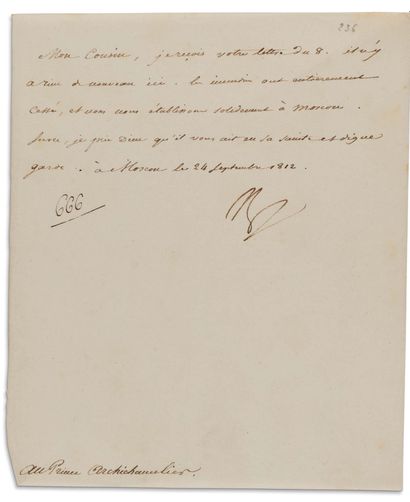 236
Mon Cousin, je reçois votre lettre du 8. il n'y
a rien de nouveau ici. les incendies ont entièrement
cessé, et nous nous établissons solidement à Moscou.
Sur ce, je prie Dieu qu'il vous ait en sa sainte et digne
garde. à Moscou le 24 septembre 1812.
666
Au Prince Archichancelier.